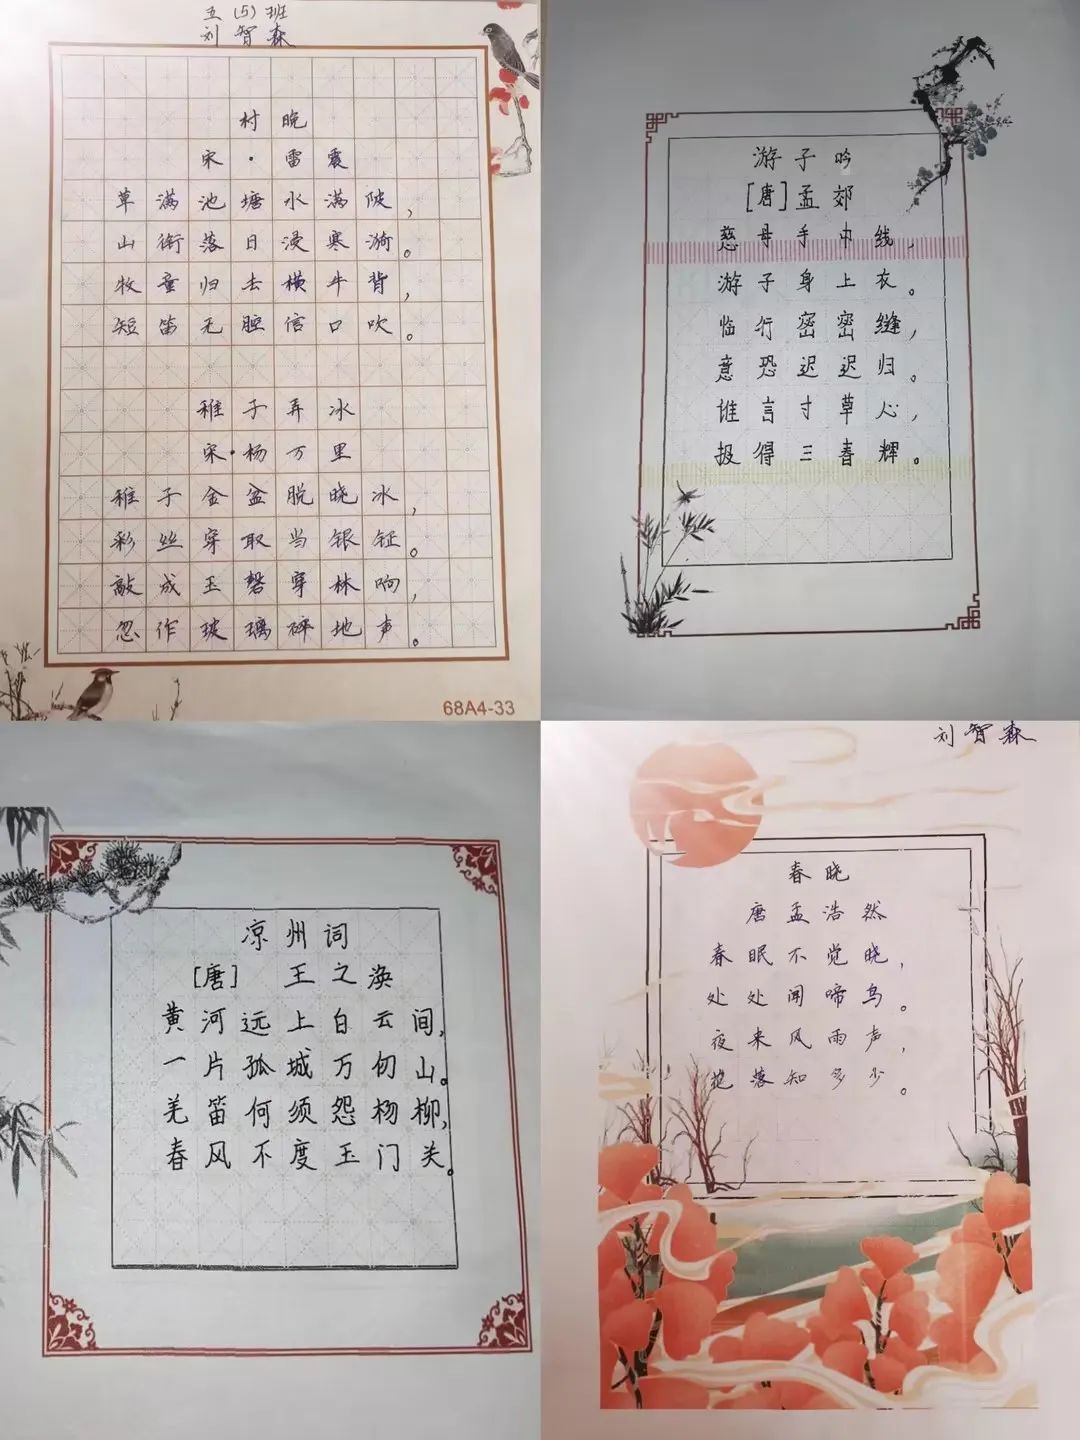 五(5)班
刘智森
村晚
宋·雷震
草满池塘水满陂，
山衔落日浸寒漪。
牧童归去横牛背，
短笛无腔信口吹。
稚子弄冰
宋·杨万里
稚子金盆脱晓冰，
彩丝穿取当银钲。
敲成玉磬穿林响，
忽作玻璃碎地声。
68A4-33
游子吟
[唐]孟郊
慈母手中线，
游子身上衣。
临行密密缝，
意恐迟迟归。
谁言寸草心，
报得三春辉。
凉州词
[唐] 王之涣
黄河远上白云间，
一片孤城万仞山。
羌笛何须怨杨柳，
春风不度玉门关。
刘智森
春晓
唐孟浩然
春眠不觉晓，
处处闻啼鸟。
夜来风雨声，
花落知多少。